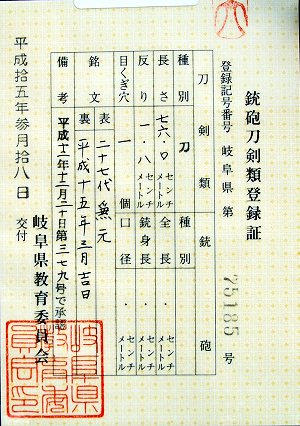 銃砲刀剣類登録証
登録記号番号 岐阜県 第 75185 号
刀剣類 銃砲
種別 刀 種別
長さ 七六・〇 センチメートル 全長 ・ センチメートル
反り 一・八 センチメートル 銃身長 ・ センチメートル
目くぎ穴 一 個 口径 ・ センチメートル
銘文 表 二十七代兼元
裏 平成十五年三月吉日
備考 平成十二年十二月二十日第三一七九号で承認
平成拾五年参月拾八日 交付
岐阜県教育委員会
岐阜県教育委員会印